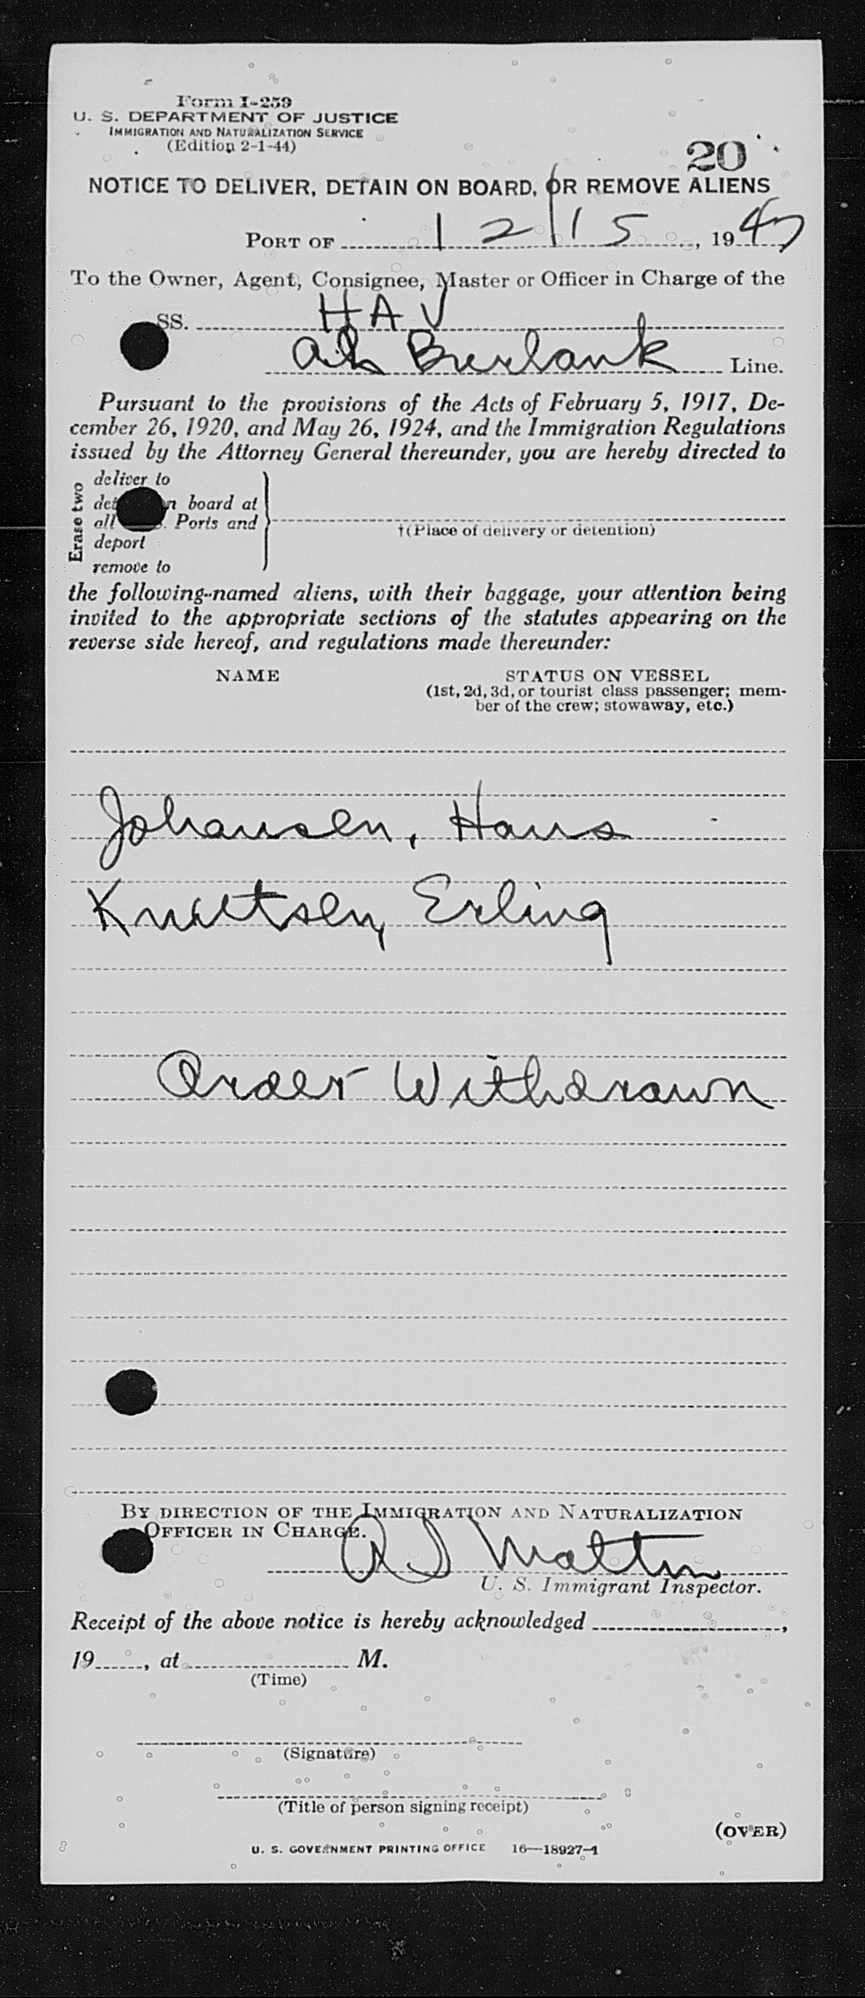 Form I-259
U. S. DEPARTMENT OF JUSTICE
IMMIGRATION AND NATURALIZATION SERVICE
(Edition 2-1-44)
20
NOTICE TO DELIVER, DETAIN ON BOARD, OR REMOVE ALIENS
PORT OF 12/15, 1947
To the Owner, Agent, Consignee, Master or Officer in Charge of the
SS. HAV
Burbank Line.
Pursuant to the provisions of the Acts of February 5, 1917, De-
cember 26, 1920, and May 26, 1924, and the Immigration Regulations
issued by the Attorney General thereunder, you are hereby directed to
Erase two
deliver to
n board at
all . Ports and
deport
remove to
†(Place of delivery or detention)
the following-named aliens, with their baggage, your attention being
invited to the appropriate sections of the statutes appearing on the
reverse side hereof, and regulations made thereunder:
NAME STATUS ON VESSEL
(1st, 2d, 3d, or tourist class passenger; mem-
ber of the crew; stowaway, etc.)
Johansen, Hans
Knuttsen, Erling
Order Withdrawn
BY DIRECTION OF THE IMMIGRATION AND NATURALIZATION
OFFICER IN CHARGE.
U. S. Immigrant Inspector.
Receipt of the above notice is hereby acknowledged ,
19 , at M.
(Time)
(Signature)
(Title of person signing receipt)
(OVER)
U. S. GOVERNMENT PRINTING OFFICE 16—18927-1